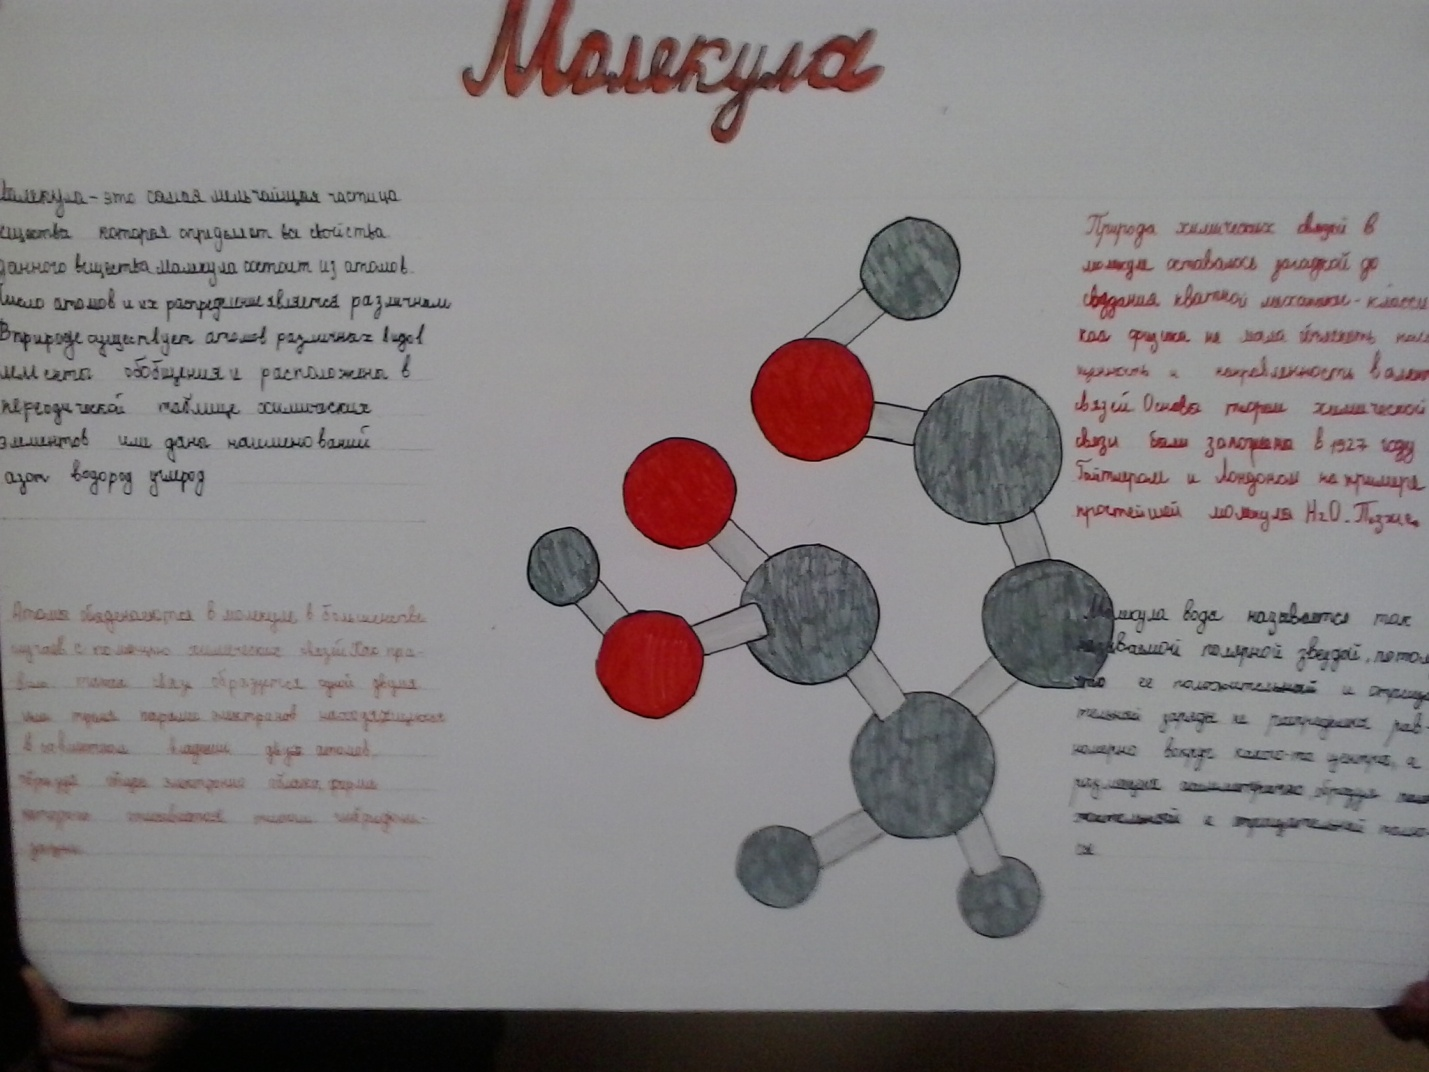 Молекула
Молекула - это самая мельчайшая частица
ещества которая определяет все свойства
данного вещества молекула состоит из атомов.
Число атомов и их распределение является различным
В природе существует атомов различных видов
лементы обобщения и расположены в
переодической таблице химических
элементов или даны наименований
азот водород углерод
Атомы обьеденяются в молекуле в большенстве
случаев с помощию химических связей Как пра-
вило такая связь образуется одной двумя
или тремя парами электранов находящихся
в владении двух атомов.
образуя общее электронно облако, форма
которого описывается типом гибридизи-
зации
Природа химических связей в
молекуле оставалось загадкой до
создания кватной механике - класси
кая физика не мала обьяснить нас
щенность и направленность валент
связей Основа теории химической
связи были заложена в 1927 году
Гайтлером и Лондоном на примере
простейшей молекула H2O. Позже.
Молекула вода называется так
называмой полярной звездой, потом
что ее положительный и отрица
тельной заряды не распределены рав-
номерно вокруг какого-то центра, а
размещены асимметрично, образуя поло
жительный и отрицательный полю-
сы